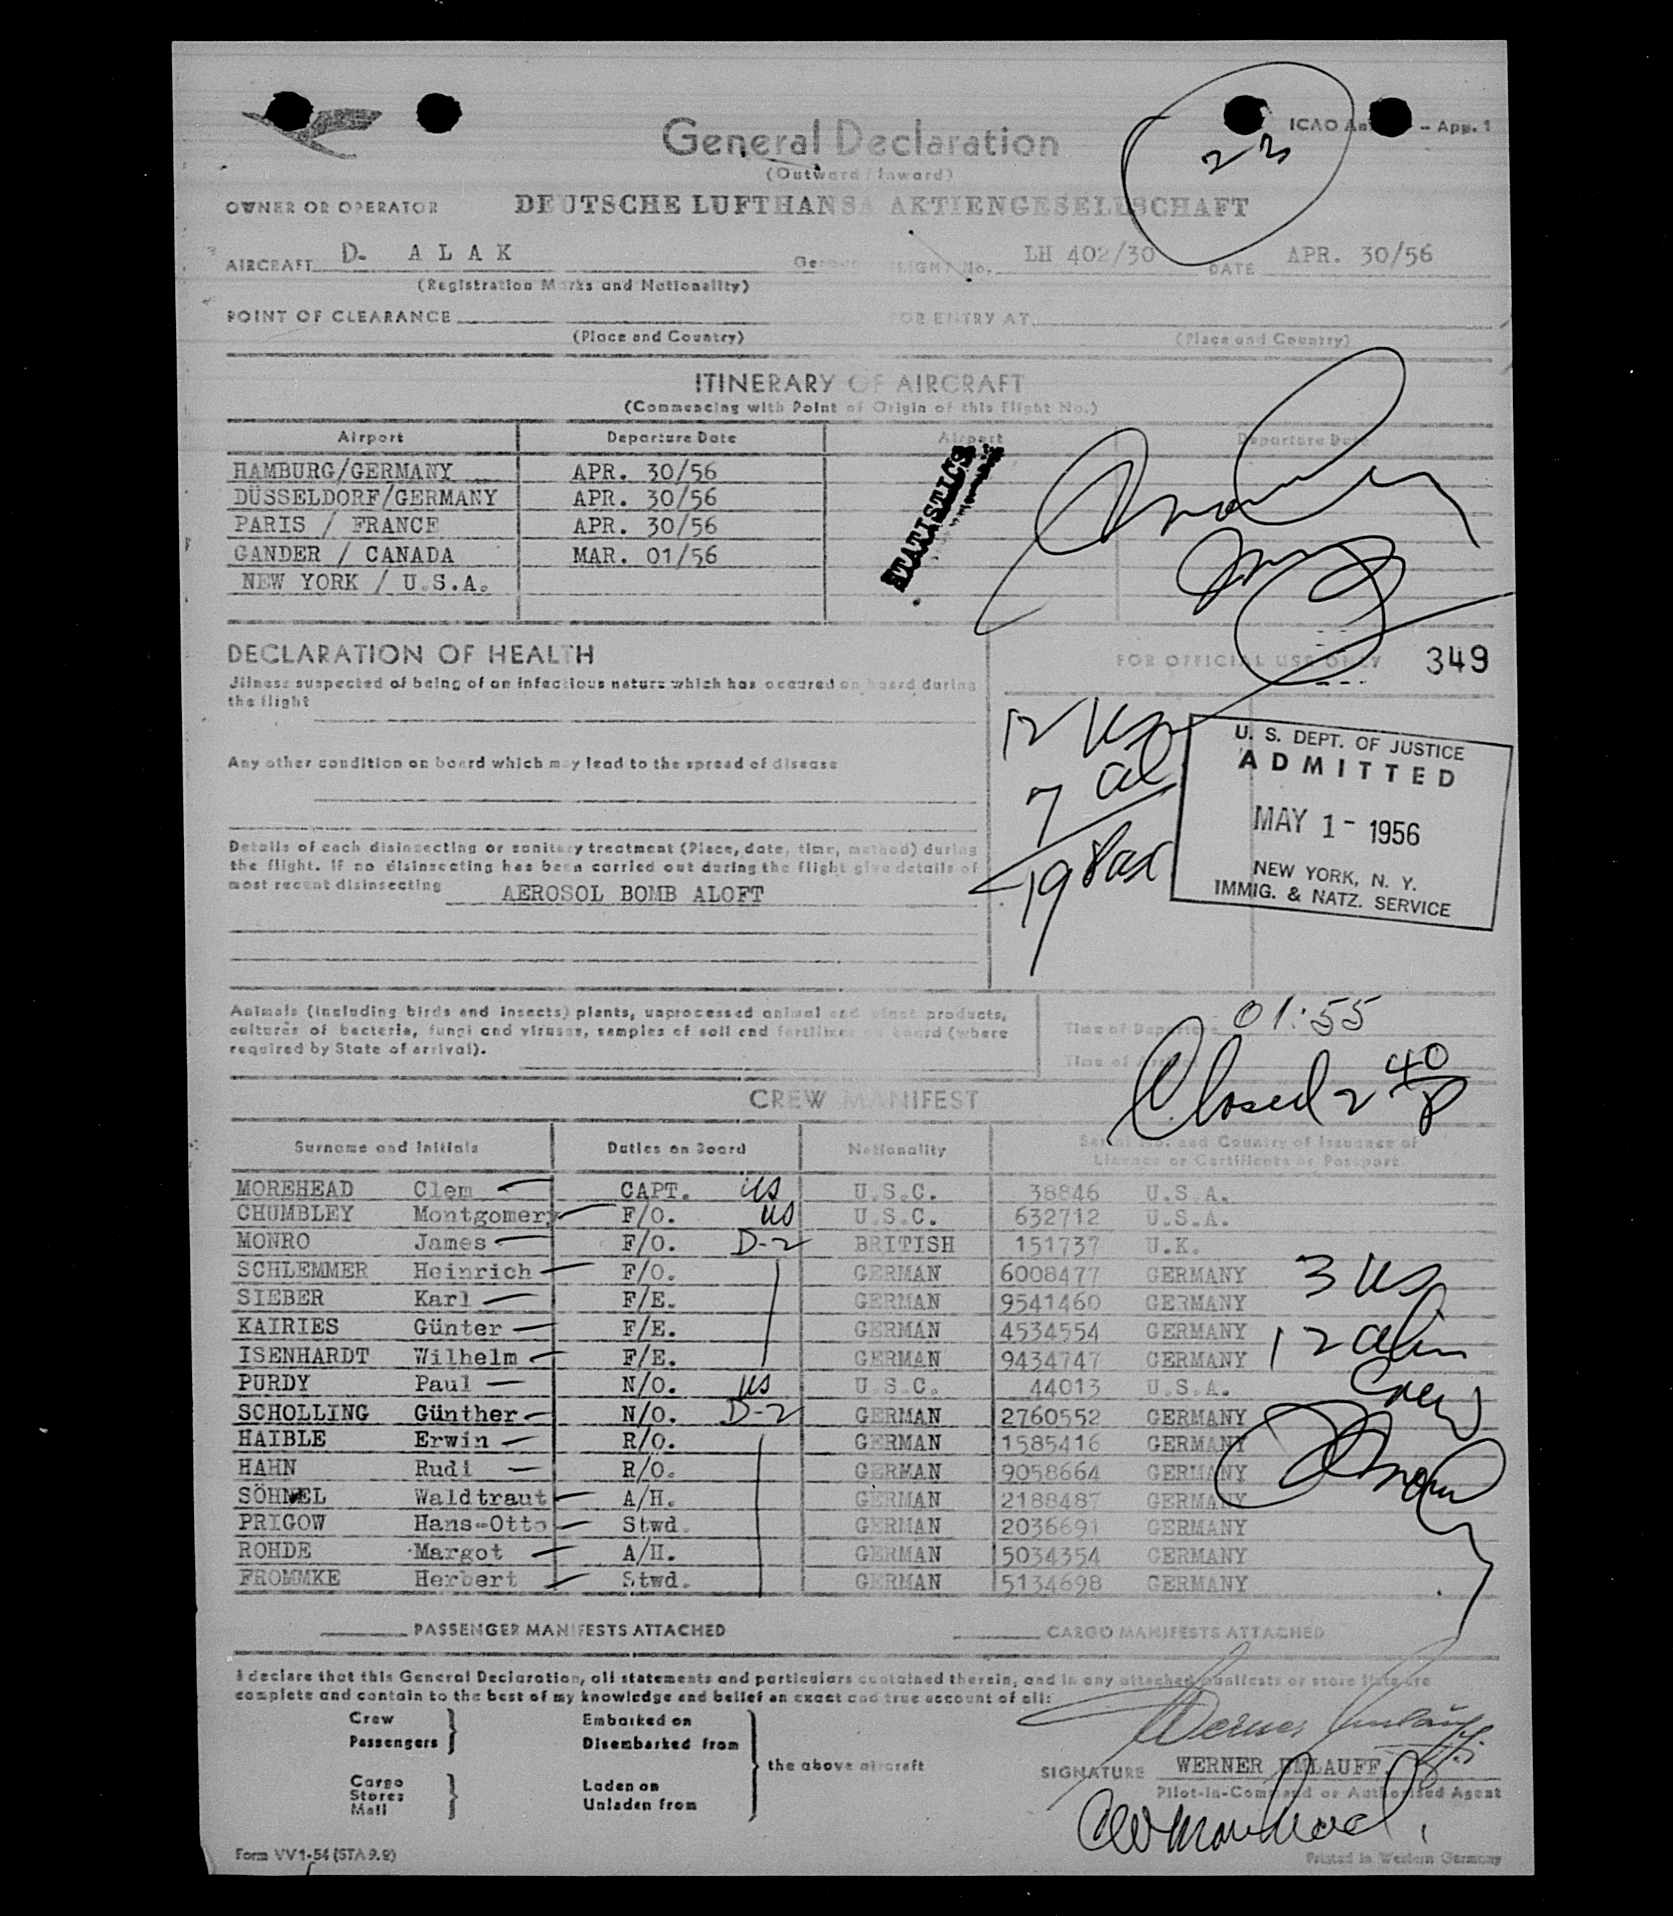 General Declaration
ICAO – App. 1
(Outward / Inward)
22
OWNER OR OPERATOR DEUTSCHE LUFTHANSA AKTIENGESELLSCHAFT
AIRCRAFT D. A L A K FLIGHT No. LH 402/30 DATE APR. 30/56
(Registration Marks and Nationality)
POINT OF CLEARANCE FOR ENTRY AT
(Place and Country) (Place and Country)
ITINERARY OF AIRCRAFT
(Commencing with Point of Origin of this Flight No.)
Airport Departure Date Airport Departure Date
HAMBURG/GERMANY APR. 30/56
DÜSSELDORF/GERMANY APR. 30/56
PARIS / FRANCE APR. 30/56
GANDER / CANADA MAR. 01/56
NEW YORK / U.S.A.
STATISTICS
DECLARATION OF HEALTH
FOR OFFICIAL USE ONLY 349
Jilness suspected of being of an infectious nature which has occured on board during
the flight
12 US
7 al
19 Pax
U. S. DEPT. OF JUSTICE
ADMITTED
MAY 1 - 1956
NEW YORK, N. Y.
IMMIG. & NATZ. SERVICE
Any other condition on board which may lead to the spread of disease
Details of each disinsecting or sanitary treatment (Place, date, time, method) during
the flight. If no disinsecting has been carried out during the flight give details of
most recent disinsecting AEROSOL BOMB ALOFT
Animals (including birds and insects) plants, unprocessed animal and plant products,
cultures of bacteria, fungi and viruses, samples of soil and fertilizer on board (where
required by State of arrival).
Time of Departure 01:55
Time of Arrival
Closed 2 40 P
CREW MANIFEST
Surname and Initials Duties on Board Nationality Serial No. and Country of Issuance of
Licence or Certificate or Passport
MOREHEAD Clem CAPT. US U.S.C. 38846 U.S.A.
CHUMBLEY Montgomery F/O. US U.S.C. 632712 U.S.A.
MONRO James F/O. D-2 BRITISH 151737 U.K.
SCHLEMMER Heinrich F/O. GERMAN 6008477 GERMANY
SIEBER Karl F/E. GERMAN 9541460 GERMANY
KAIRIES Günter F/E. GERMAN 4534554 GERMANY
ISENHARDT Wilhelm F/E. GERMAN 9434747 GERMANY
PURDY Paul N/O. US U.S.C. 44013 U.S.A.
SCHOLLING Günther N/O. D-2 GERMAN 2760552 GERMANY
HAIBLE Erwin R/O. GERMAN 1585416 GERMANY
HAHN Rudi R/O. GERMAN 9058664 GERMANY
SÖHNEL Waldtraut A/H. GERMAN 2188487 GERMANY
PRIGOW Hans-Otto Stwd. GERMAN 2036691 GERMANY
ROHDE Margot A/H. GERMAN 5034354 GERMANY
FROMMKE Herbert Stwd. GERMAN 5134698 GERMANY
3 US
12 alien
Crew
PASSENGER MANIFESTS ATTACHED CARGO MANIFESTS ATTACHED
I declare that this General Declaration, all statements and particulars contained therein, and in any attached manifests or store lists are
complete and contain to the best of my knowledge and belief an exact and true account of all:
Crew
Passengers
Embarked on
Disembarked from
Cargo
Stores
Mail
Laden on
Unladen from
the above aircraft
SIGNATURE WERNER UMLAUFF.
Pilot-in-Command or Authorised Agent
Form VV 1-54 (STA 9.9)
Printed in Western Germany